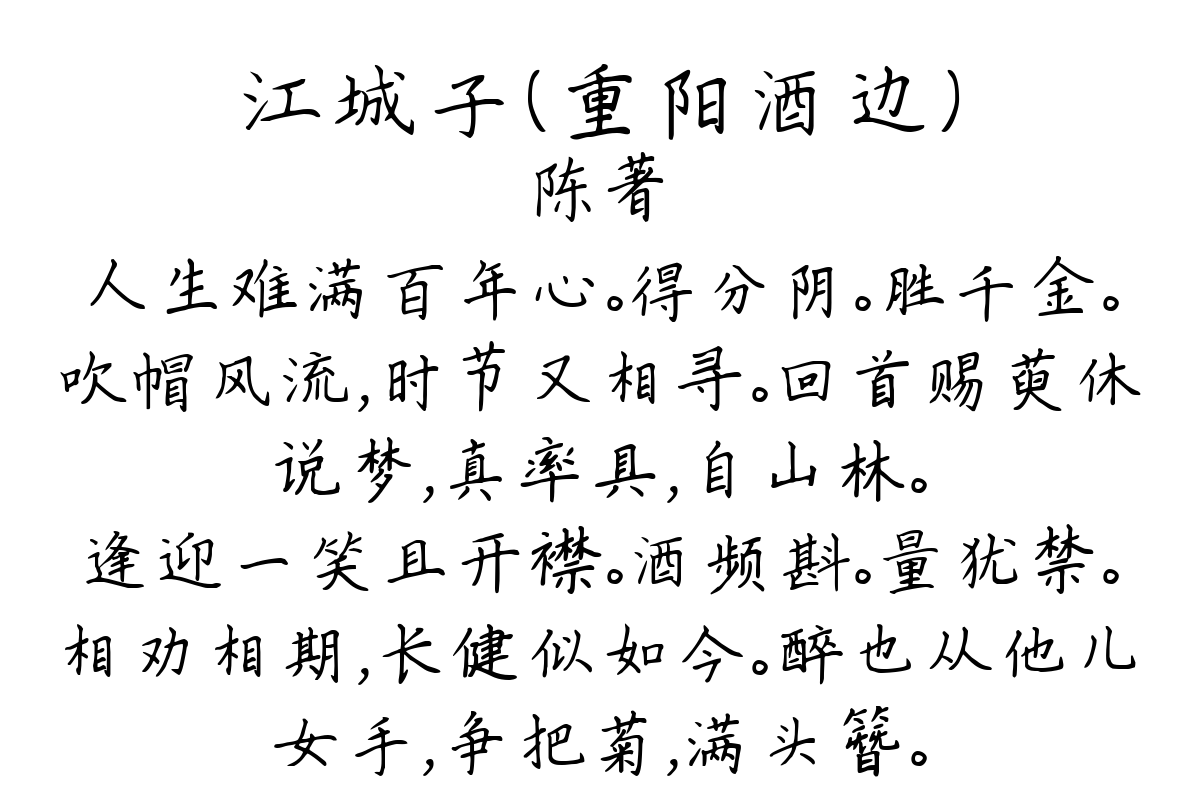 江城子(重阳酒边)
陈著
人生难满百年心。得分阴。胜千金。
吹帽风流,时节又相寻。回首赐萸休
说梦,真率具,自山林。
逢迎一笑且开襟。酒频斟。量犹禁。
相劝相期,长健似如今。醉也从他儿
女手,争把菊,满头簪。